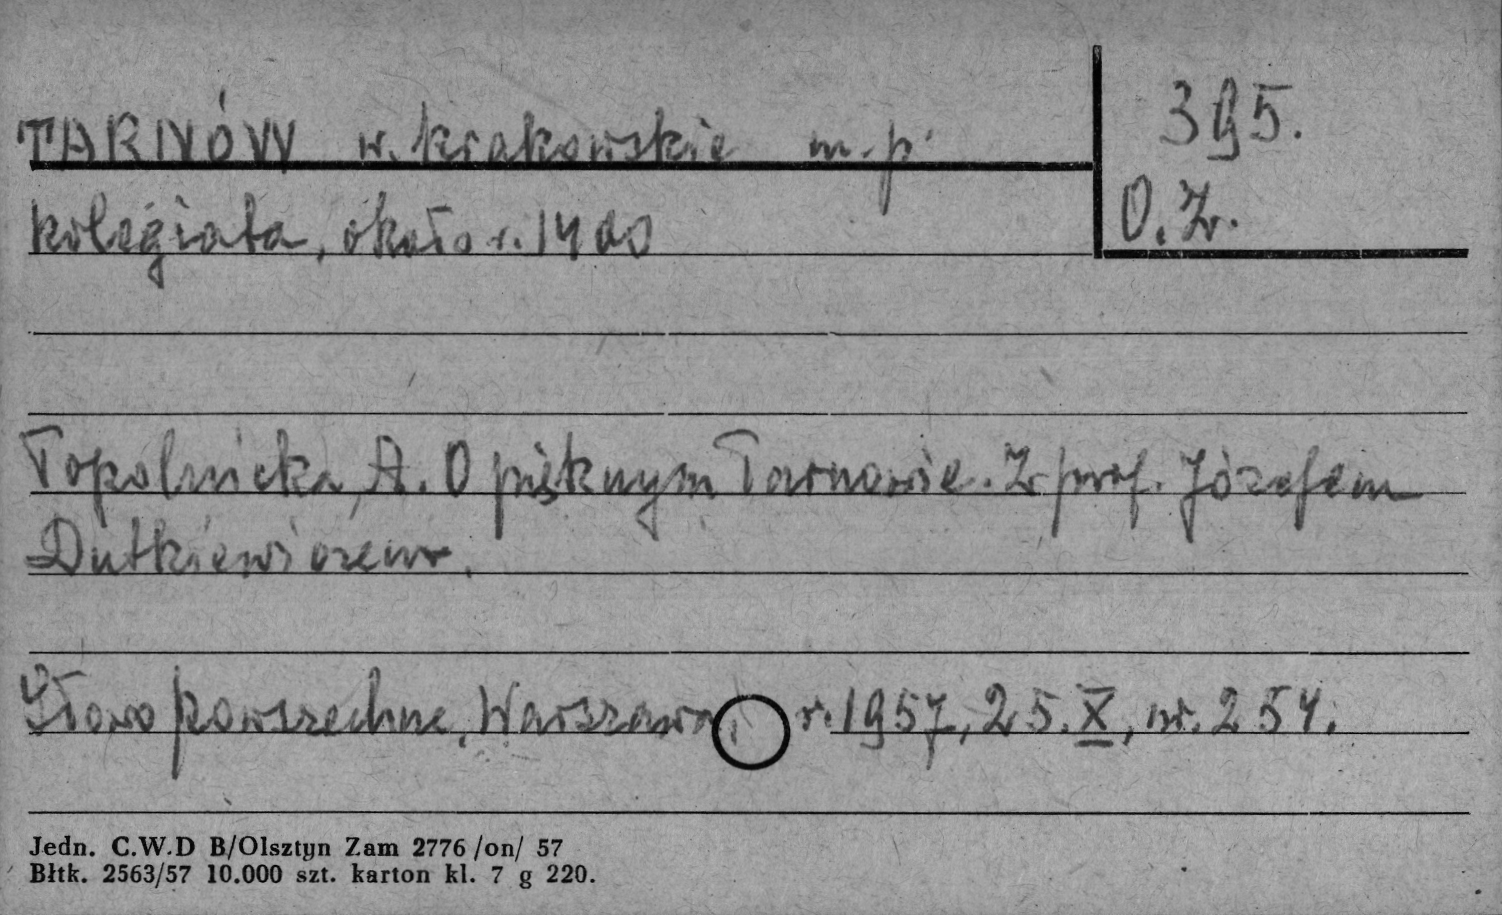 TARNÓW w. krakowskie m. p.
395.
kolegiata, około r. 1400
O. Z.
Topolnicka, A. O pięknym Tarnowie. Z prof. Józefem
Dutkiewiczem.
Słowo powszechne, Warszawa, r. 1957, 25. X, nr. 254.
Jedn. C.W.D B/Olsztyn Zam 2776 /on/ 57
Błtk. 2563/57 10.000 szt. karton kl. 7 g 220.